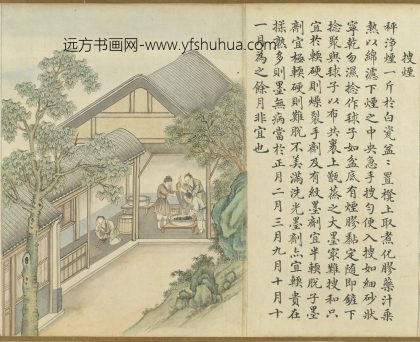 远方书画网-www.yfshuhua.com
搜煙
秤淨煙一斤於白瓷盆ㄑ置櫈上取煮化膠藥汁乘
熱以綿濾下煙之中央急手搜勻便入搜如細砂狀
寧乾勿濕捻作毬子如盆底有煙膠黏定隨即鏟下
捻聚與毬子以布共裹上甑蒸之大墨最難搜和只
宜於輭硬則燥裂手劑及有紋墨劑宜半輭脫子墨
劑宜極輭硬則難脫不美滿洗光墨劑亦宜輭貴在
揉熟多則墨無病當於正月二月三月九月十月十
一月為之餘月非宜也